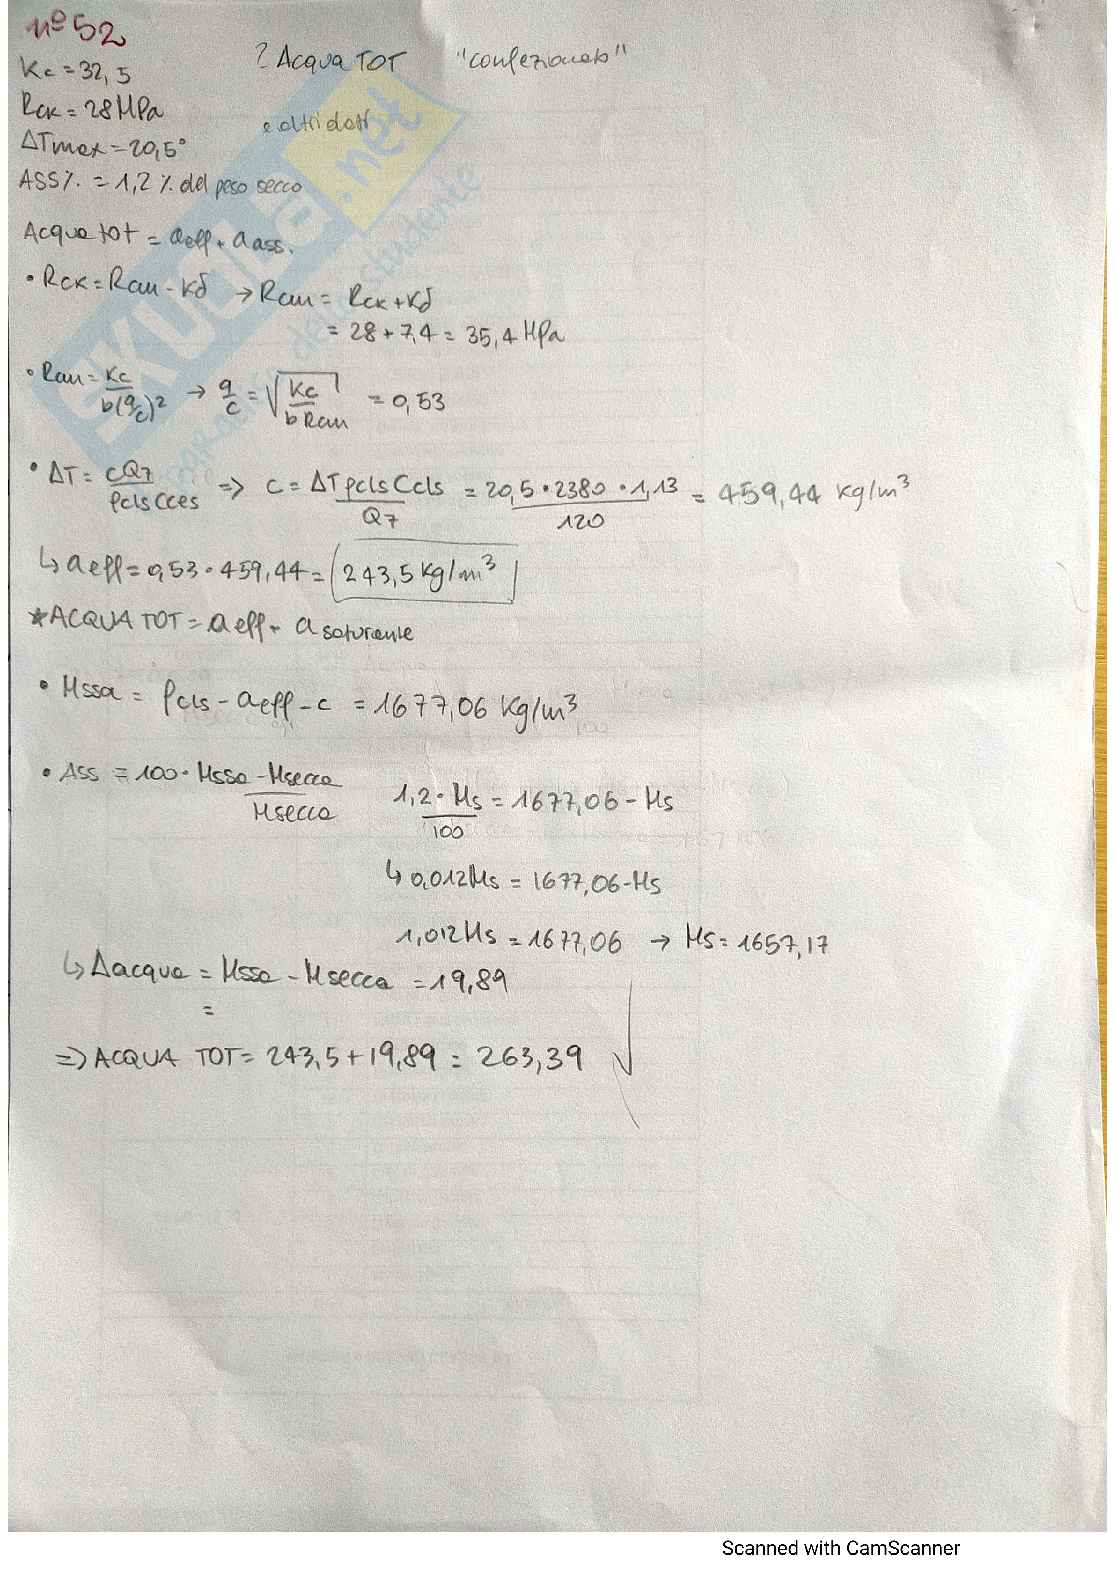 nº 52
Kc = 32,5
? Acqua TOT "confezionato"
Rck = 28 MPa
e altri dati
ΔTmax = 20,5°
ASS% = 1,2 % del peso secco
Acqua tot = aeff + aass.
• Rck = Rcm - Kδ → Rcm = Rck + Kδ
= 28 + 7,4 = 35,4 MPa
• Rcm = Kc / b(a/c)² → a/c = √(Kc / b Rcm) = 0,53
• ΔT = cQ7 / ρcls Ccls => c = ΔT ρcls Ccls / Q7 = 20,5 • 2380 • 1,13 / 120 = 459,44 kg/m³
↳ aeff = 0,53 • 459,44 = 243,5 kg/m³
* ACQUA TOT = aeff + a saturante
• Mssa = ρcls - aeff - c = 1677,06 Kg/m³
• Ass = 100 • Mssa - Msecca / Msecca
1,2 • Ms / 100 = 1677,06 - Ms
↳ 0,012Ms = 1677,06 - Ms
1,012Ms = 1677,06 → Ms = 1657,17
↳ Δacqua = Mssa - Msecca = 19,89
=
=> ACQUA TOT = 243,5 + 19,89 = 263,39
SKUOLA.net
Scanned with CamScanner